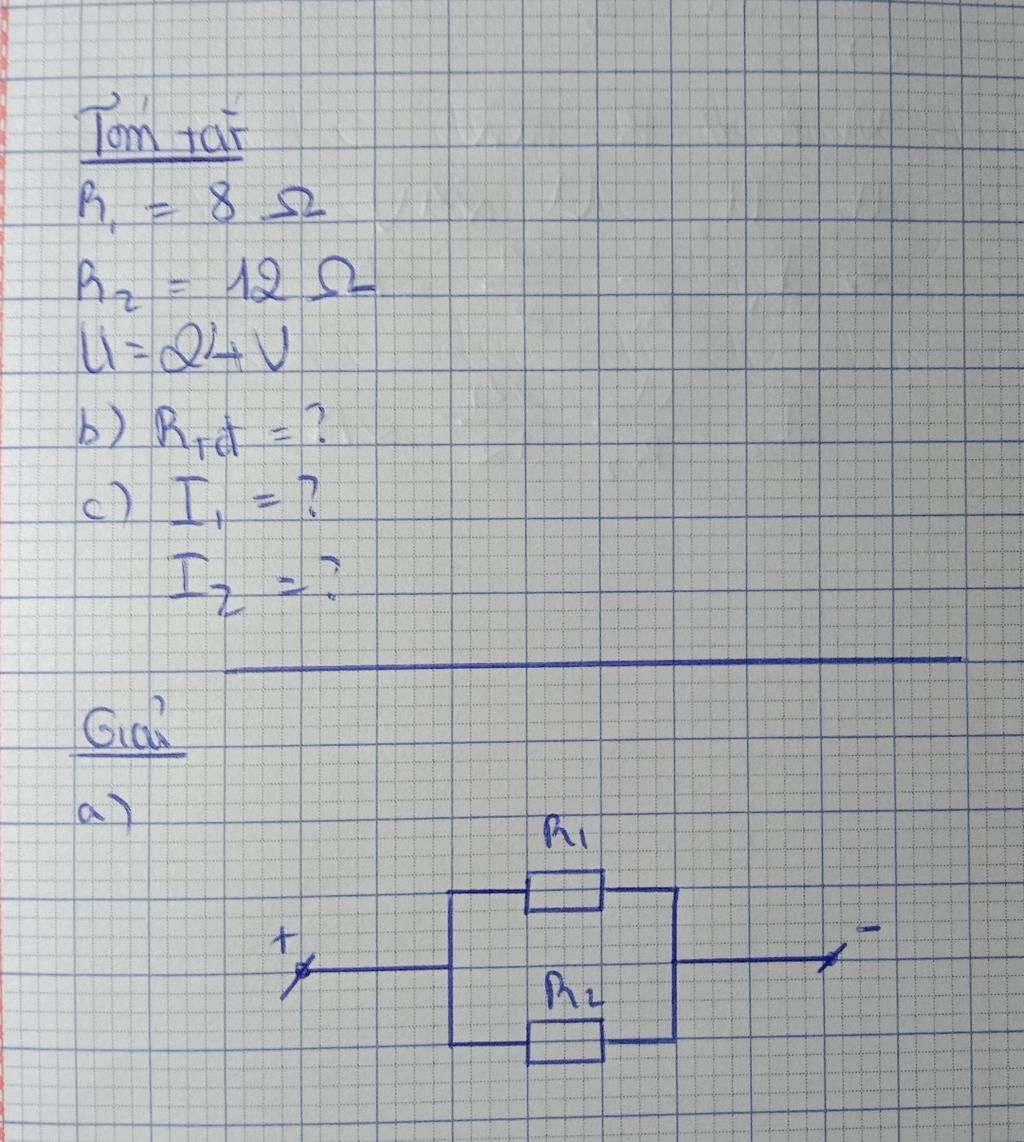 Tóm tắt
R₁ = 8 Ω
R₂ = 12 Ω
U = 24 V
b) Rtđ = ?
c) I₁ = ?
I₂ = ?
Giải
a)
R1
+ -
R2